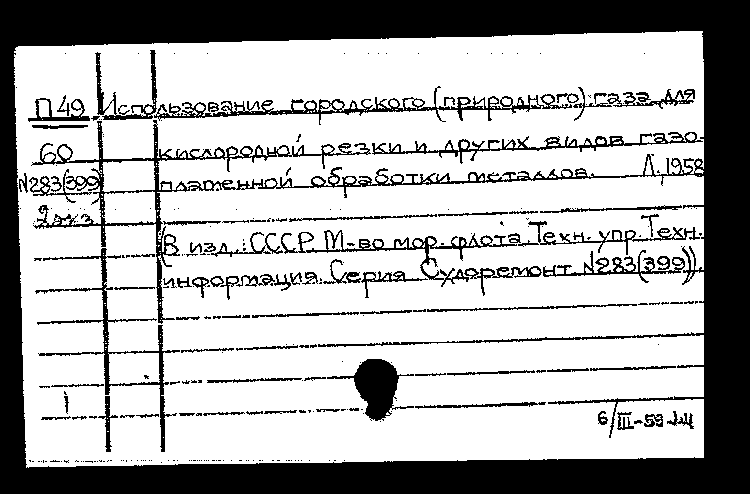 П49 Использование городского (природного) газа для
60 кислородной резки и других видов газо-
№283(399) пламенной обработки металлов. Л., 1958
2 экз.
(В изд.: СССР. М-во мор. флота. Техн. упр. Техн.
информация. Серия Судоремонт №283(399)).
1
6/III-59